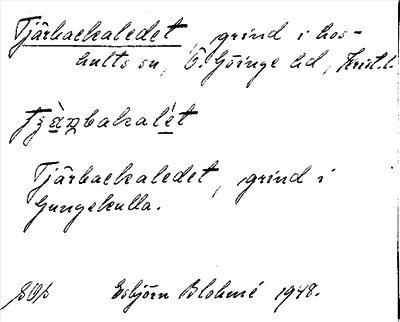 Tjärbackaledet, grind i Los-
hults sn, Ö. Göinge hd, Krist. l.
Tjärbackaledet, grind i
Gungekulla.
Esbjörn Blohmé 1948.